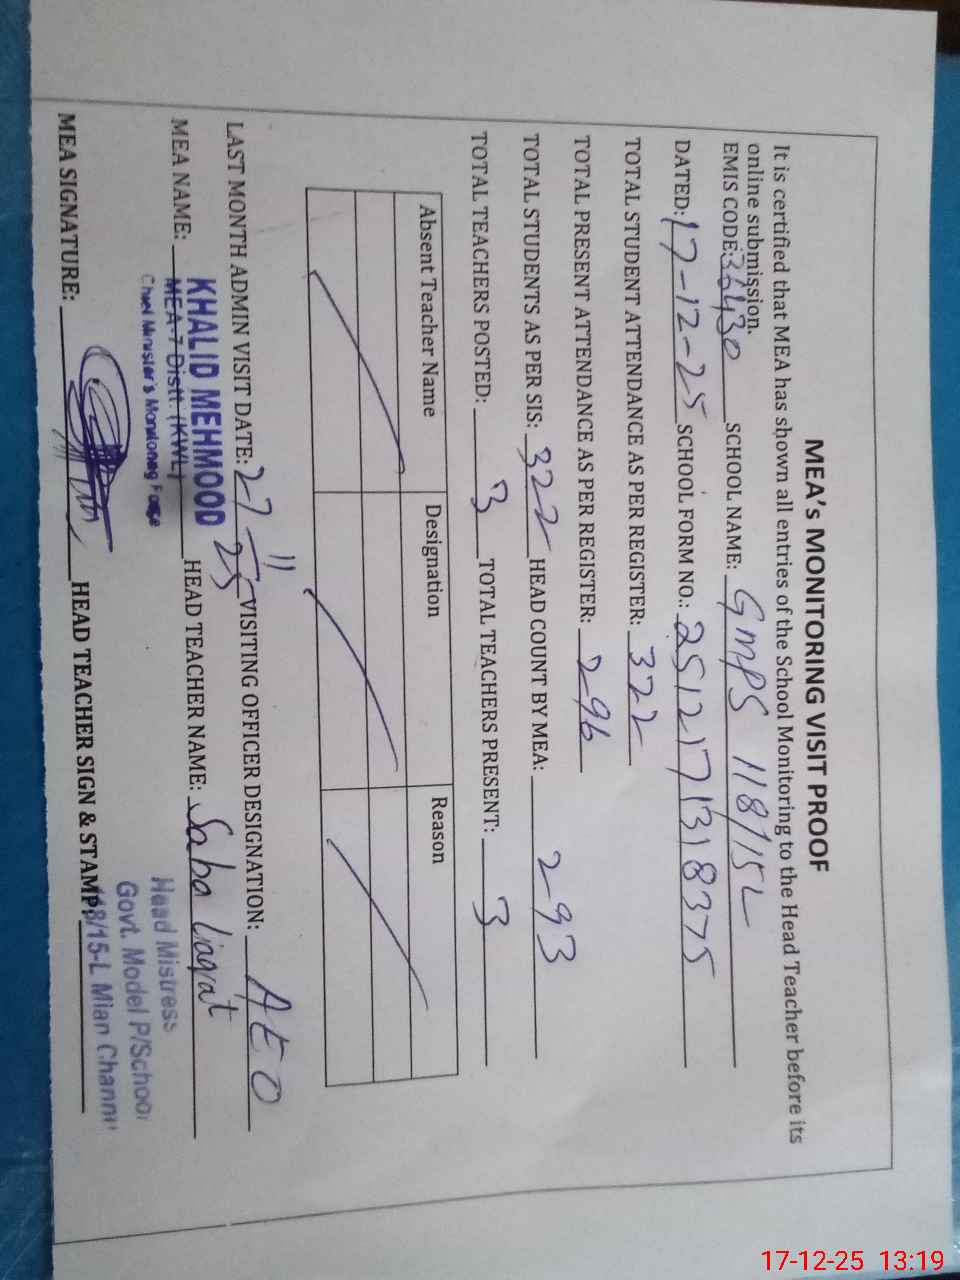 MEA's MONITORING VISIT PROOF
It is certified that MEA has shown all entries of the School Monitoring to the Head Teacher before its
online submission.
EMIS CODE: SCHOOL NAME: GMPS 118/15L
DATED: 17-12-25 SCHOOL FORM NO.: 2512171318375
TOTAL STUDENT ATTENDANCE AS PER REGISTER: 322
TOTAL PRESENT ATTENDANCE AS PER REGISTER: 296
TOTAL STUDENTS AS PER SIS: 322 HEAD COUNT BY MEA: 293
TOTAL TEACHERS POSTED: 3 TOTAL TEACHERS PRESENT: 3
Absent Teacher Name Designation Reason
LAST MONTH ADMIN VISIT DATE: 27-11-25 VISITING OFFICER DESIGNATION: AEO
MEA NAME: KHALID MEHMOOD HEAD TEACHER NAME: Saba liaqat
MEA-7 Distt. (KWL)
Chief Minister's Monitoring Force
Head Mistress
Govt. Model P/School
MEA SIGNATURE: HEAD TEACHER SIGN & STAMP: 118/15-L Mian Channu
17-12-25 13:19